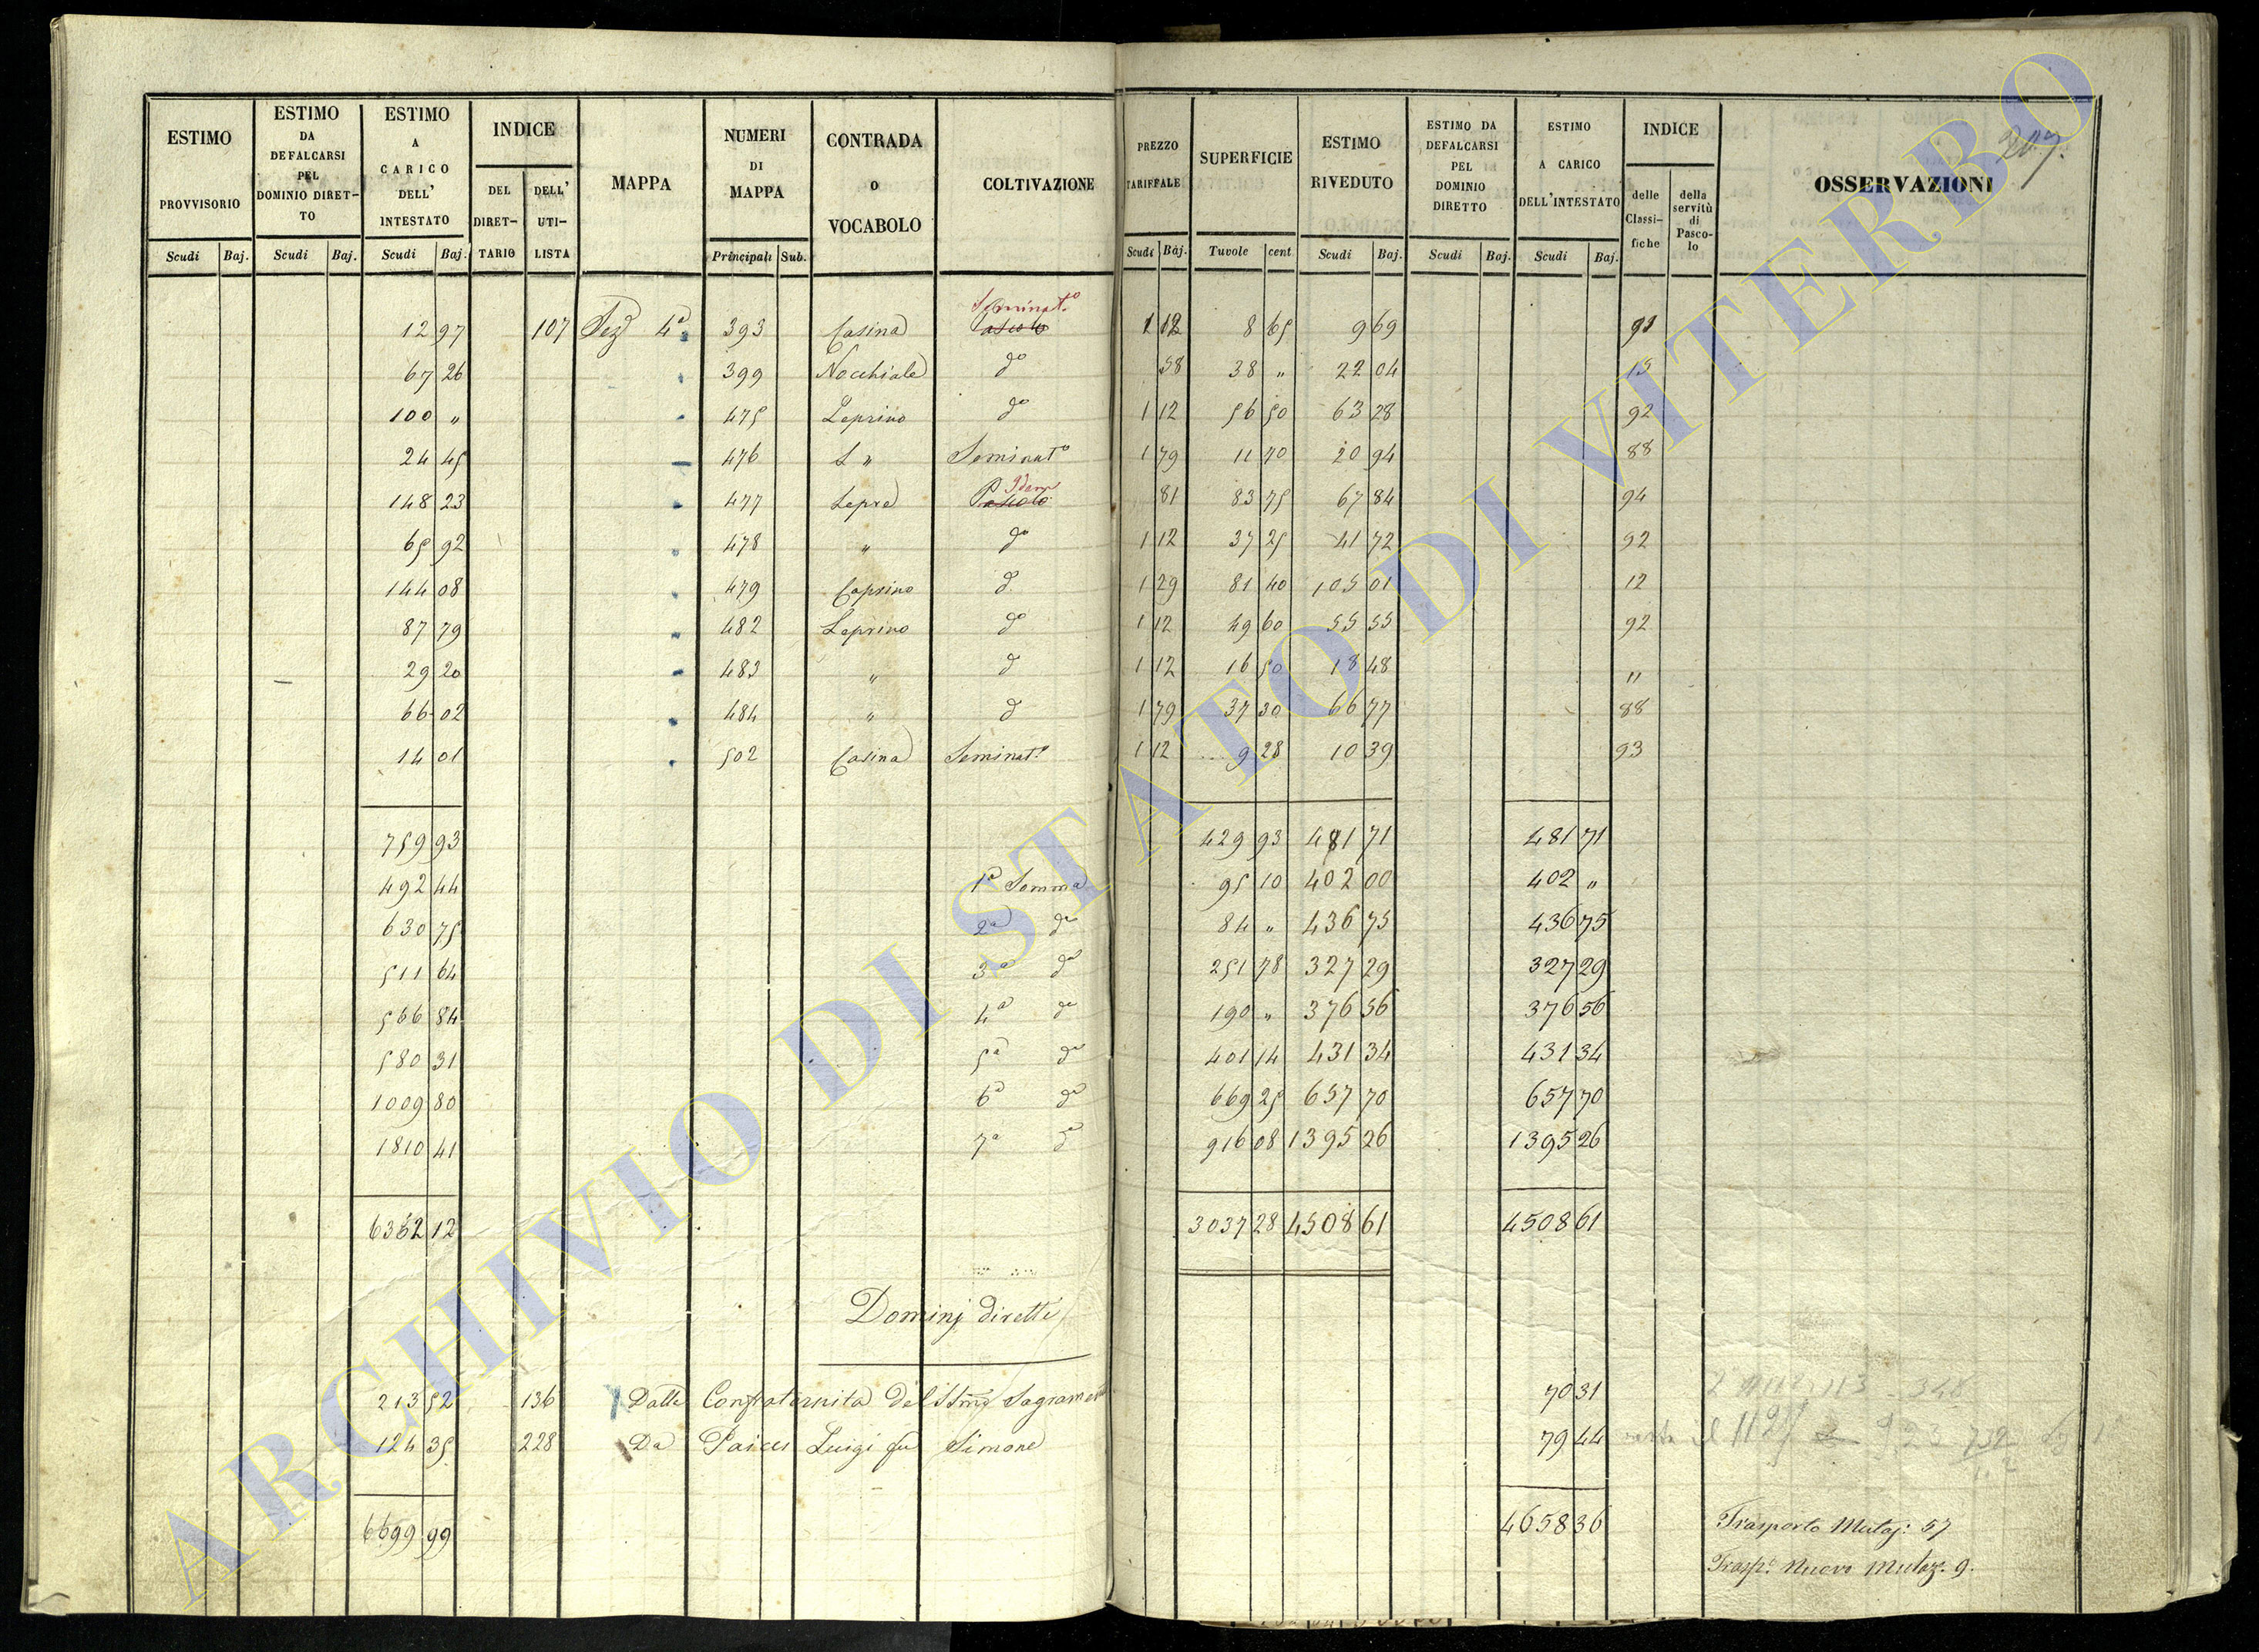 207.
ESTIMO PROVVISORIO | ESTIMO DA DEFALCARSI PEL DOMINIO DIRETTO | ESTIMO A CARICO DELL' INTESTATO | INDICE DEL DIRETTARIO | DELL' UTILISTA | MAPPA | NUMERI DI MAPPA | CONTRADA O VOCABOLO | COLTIVAZIONE | PREZZO TARIFFALE | SUPERFICIE | ESTIMO RIVEDUTO | ESTIMO DA DEFALCARSI PEL DOMINIO DIRETTO | ESTIMO A CARICO DELL'INTESTATO | INDICE delle Classifiche | della servitù di Pascolo | OSSERVAZIONI
Scudi Baj. | Scudi Baj. | Scudi Baj. | Principali Sub. | Scudi Baj. | Tuvole cent | Scudi Baj. | Scudi Baj. | Scudi Baj.
12 97 107 Sez 4a 393 Casina Seminato Pascolo 1 12 8 65 9 69 93
67 26 399 Nocchiale do 58 38 " 22 04 15
100 " 475 Leprino do 1 12 56 50 63 28 92
24 45 476 L " Seminato 1 79 11 70 20 94 88
148 23 477 Lepre Idem Pascolo 81 83 75 67 84 94
65 92 478 " do 1 12 37 25 41 72 92
144 08 479 Caprino d. 1 29 81 40 105 01 12
87 79 482 Leprino do 1 12 49 60 55 55 92
29 20 483 " d 1 12 16 50 18 48 "
66 02 484 " d 1 79 37 30 66 77 88
14 01 502 Casina Seminato 1 12 9 28 10 39 93
759 93 429 93 481 71 481 71
492 44 1a Somma 95 10 402 00 402 "
630 75 2a da 84 " 436 75 436 75
511 64 3a da 251 78 327 29 327 29
566 84 4a da 190 " 376 56 376 56
580 31 5a da 401 14 431 34 431 34
1009 80 6a da 669 25 657 70 657 70
1810 41 7a da 916 08 1395 26 1395 26
6362 12 3037 28 4508 61 4508 61
Dominj diretti
213 52 136 Dalla Confraternita del SSmo Sagramento 70 31
124 35 228 Da Paices Luigi fu Simone 79 44
6699 99 4658 36 Trasporto Mutaz: 57
Trasp.o Nuovo Mutaz.e 9.
ARCHIVIO DI STATO DI VITERBO